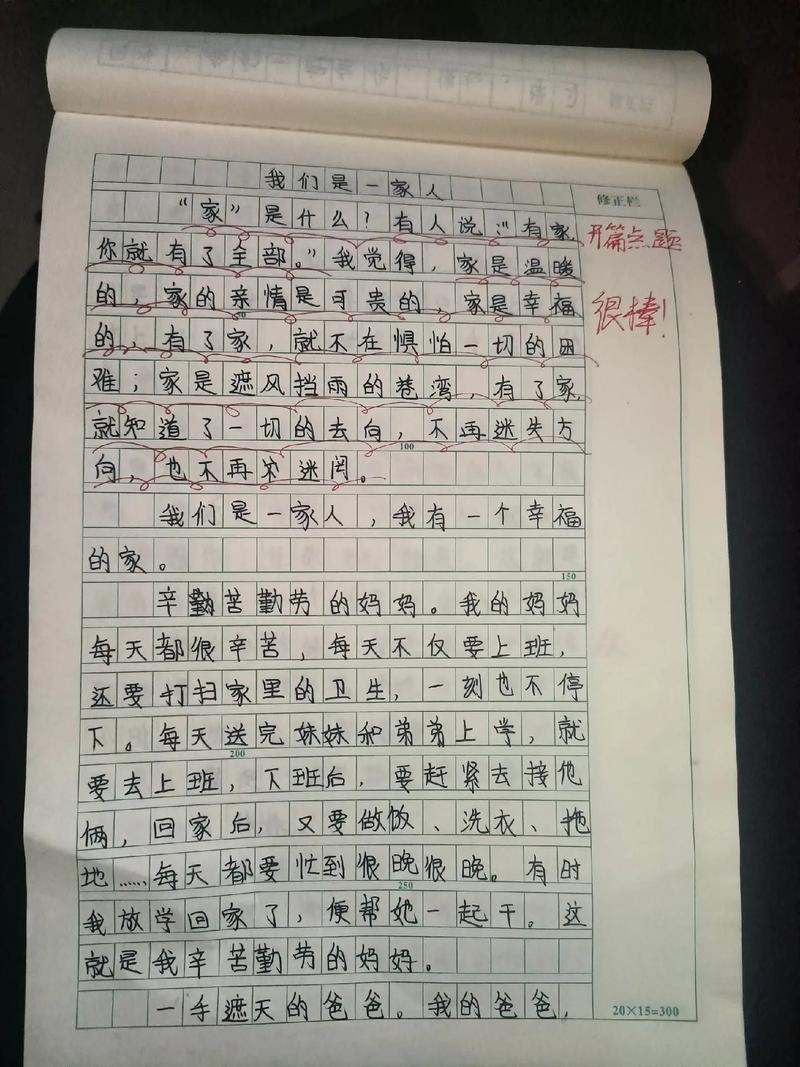 我们是一家人
修正栏
“家”是什么？有人说：“有家
你就有了全部。”我觉得，家是温暖
的，家的亲情是可贵的，家是幸福
的，有了家，就不在惧怕一切的困
难；家是遮风挡雨的巷湾，有了家，
就知道了一切的去向，不再迷失方
100
向，也不再迷罔。
我们是一家人，我有一个幸福
的家。
150
辛勤苦勤劳的妈妈。我的妈妈
每天都很辛苦，每天不仅要上班，
还要打扫家里的卫生，一刻也不停
下。每天送完妹妹和弟弟上学，就
200
要去上班，下班后，要赶紧去接他
俩，回家后，又要做饭、洗衣、拖
地……每天都要忙到很晚很晚。有时
250
我放学回家了，便帮她一起干。这
就是我辛苦勤劳的妈妈。
一手遮天的爸爸。我的爸爸，
20×15=300
开篇点题
很棒！